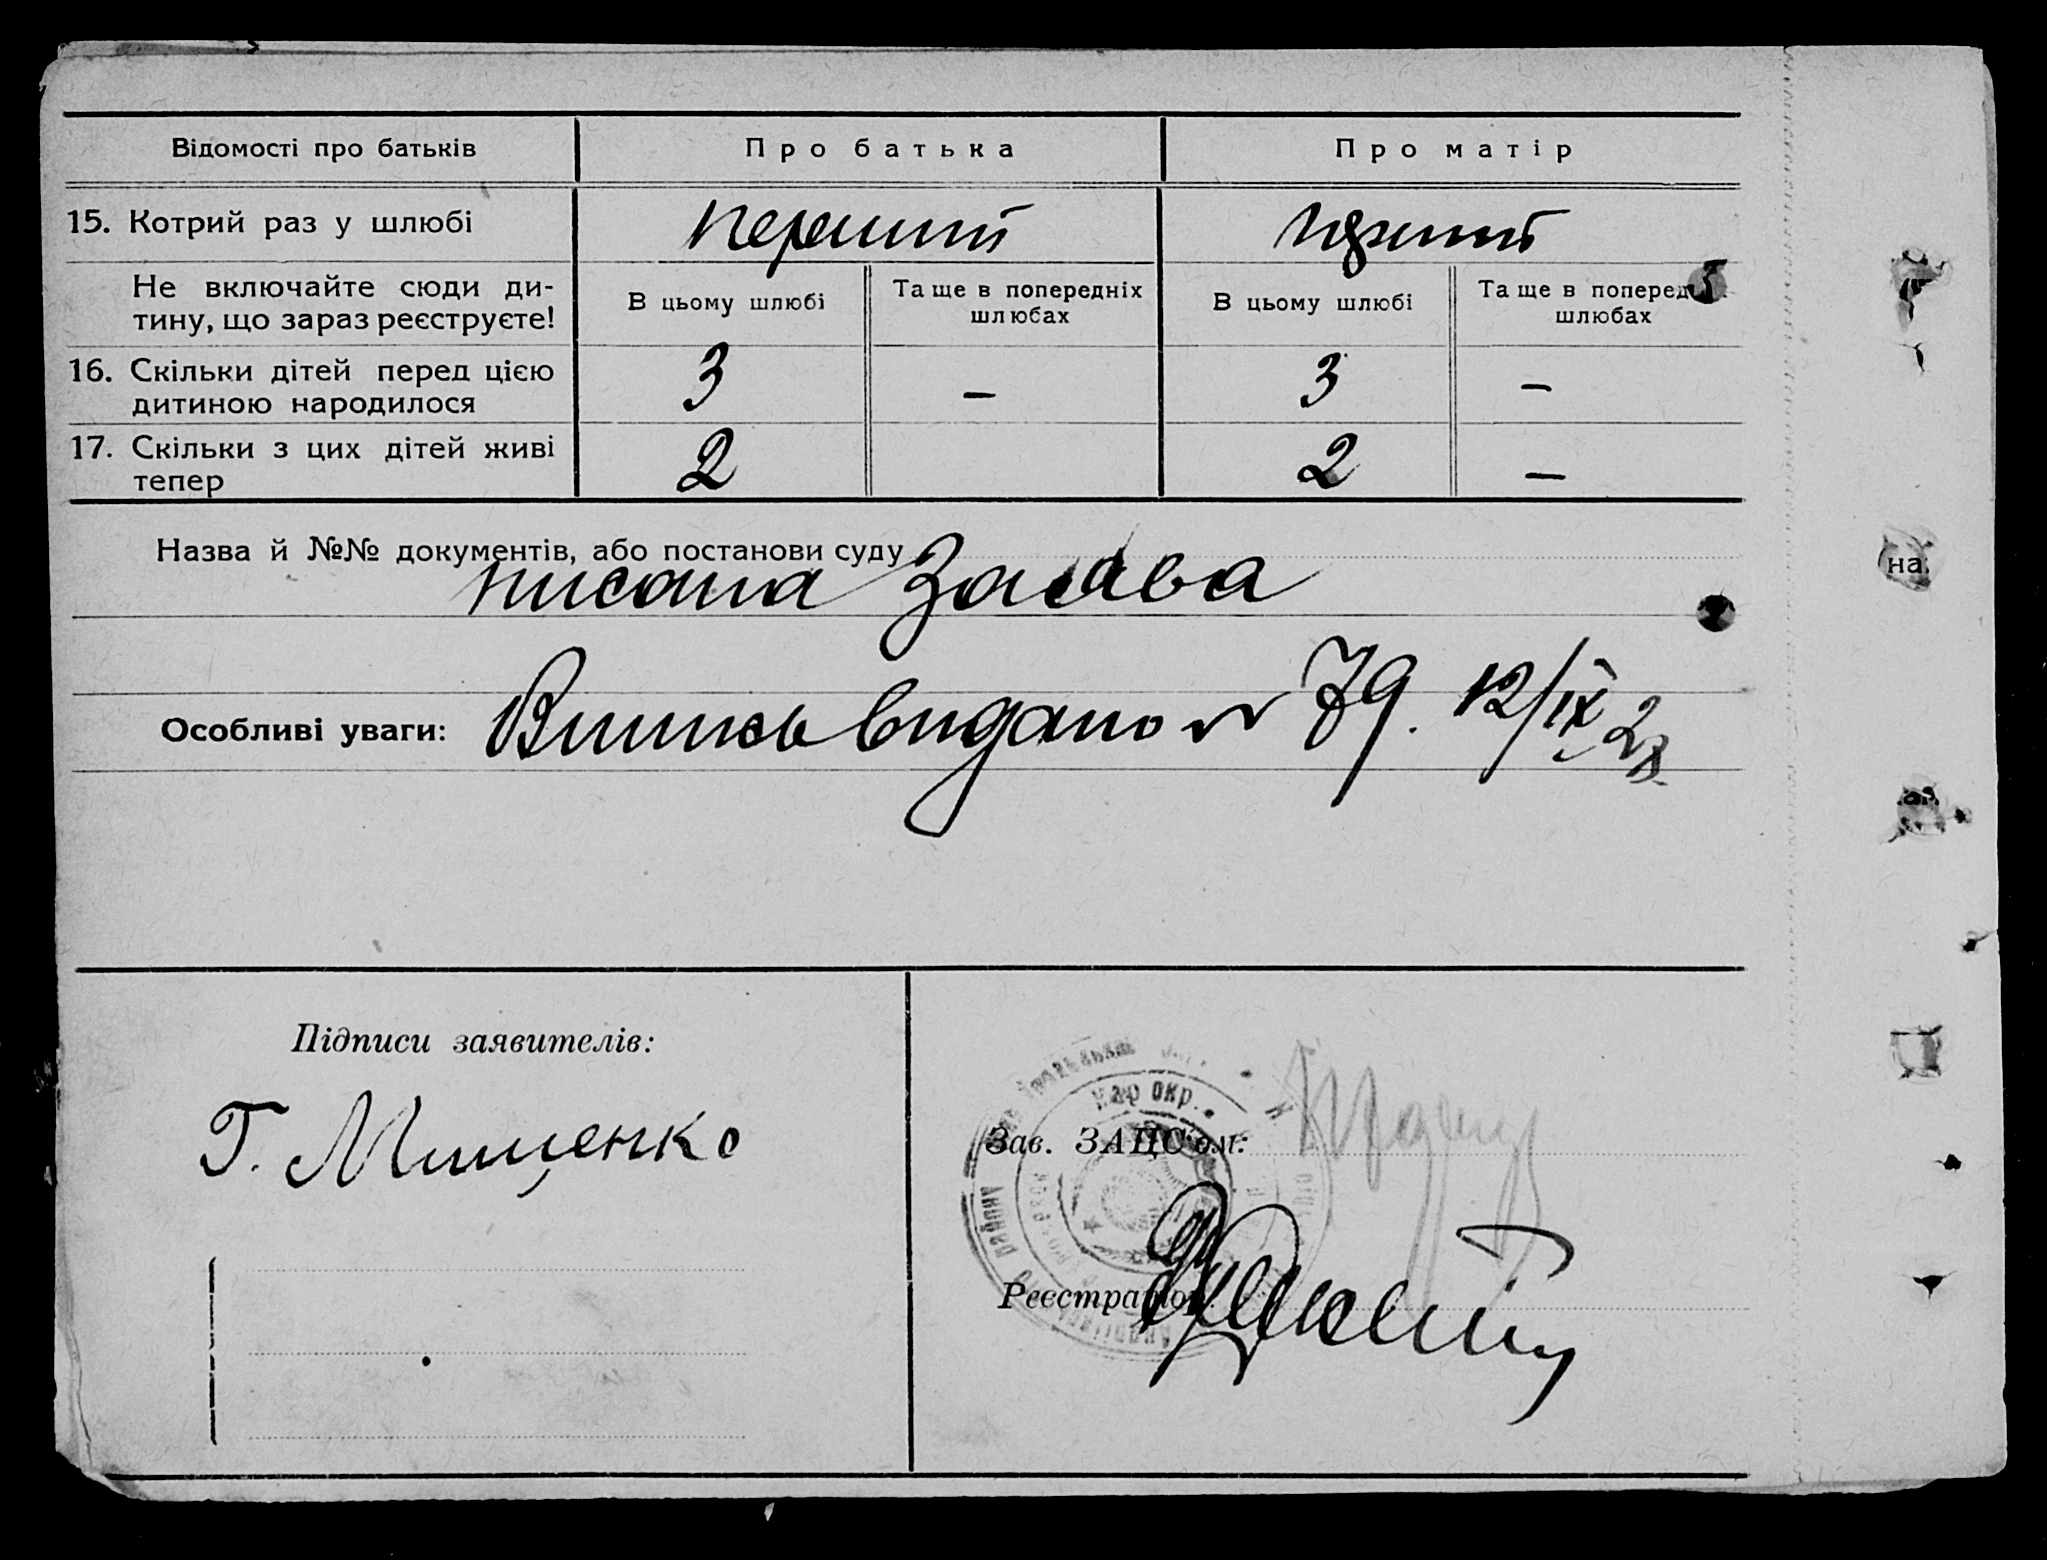 Відомості про батьків Про батька Про матір
15. Котрий раз у шлюбі перший
Не включайте сюди ди-
тину, що зараз реєструєте!
В цьому шлюбі Та ще в попередніх
шлюбах
В цьому шлюбі Та ще в поперед
шлюбах
16. Скільки дітей перед цією
дитиною народилося 3 – 3 –
17. Скільки з цих дітей живі
тепер 2 2 –
Назва й №№ документів, або постанови суду
писана Заява
Особливі уваги: Випись видано № 79. 12/IX 28
Підписи заявителів:
Г. Мищенко
Кар окр.
Зав. ЗАЦС'ом:
Реєстратор
на.